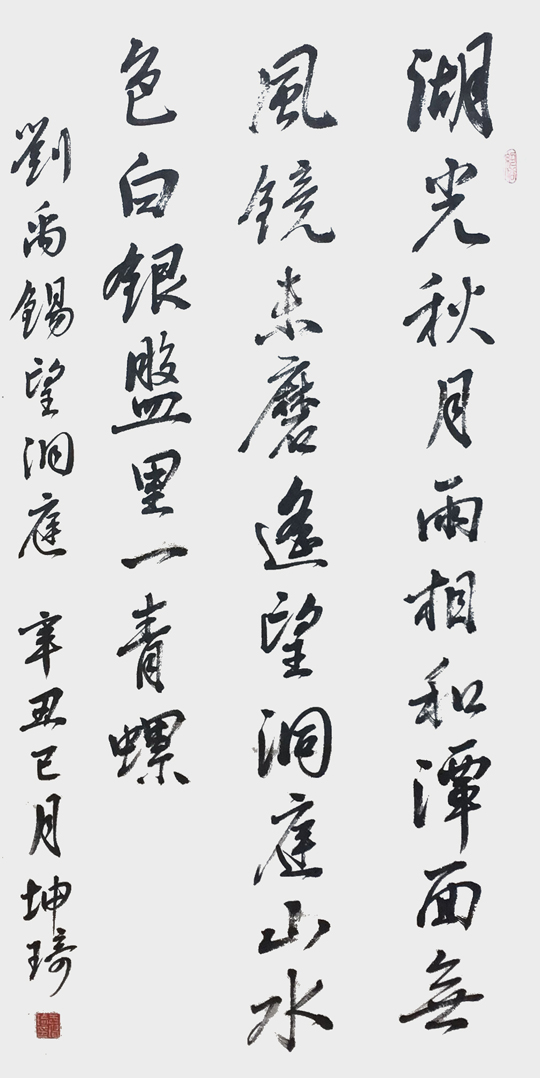 湖光秋月兩相和潭面無
風鏡未磨遙望洞庭山水
色白銀盤里一青螺
劉禹錫望洞庭 辛丑巳月坤琦